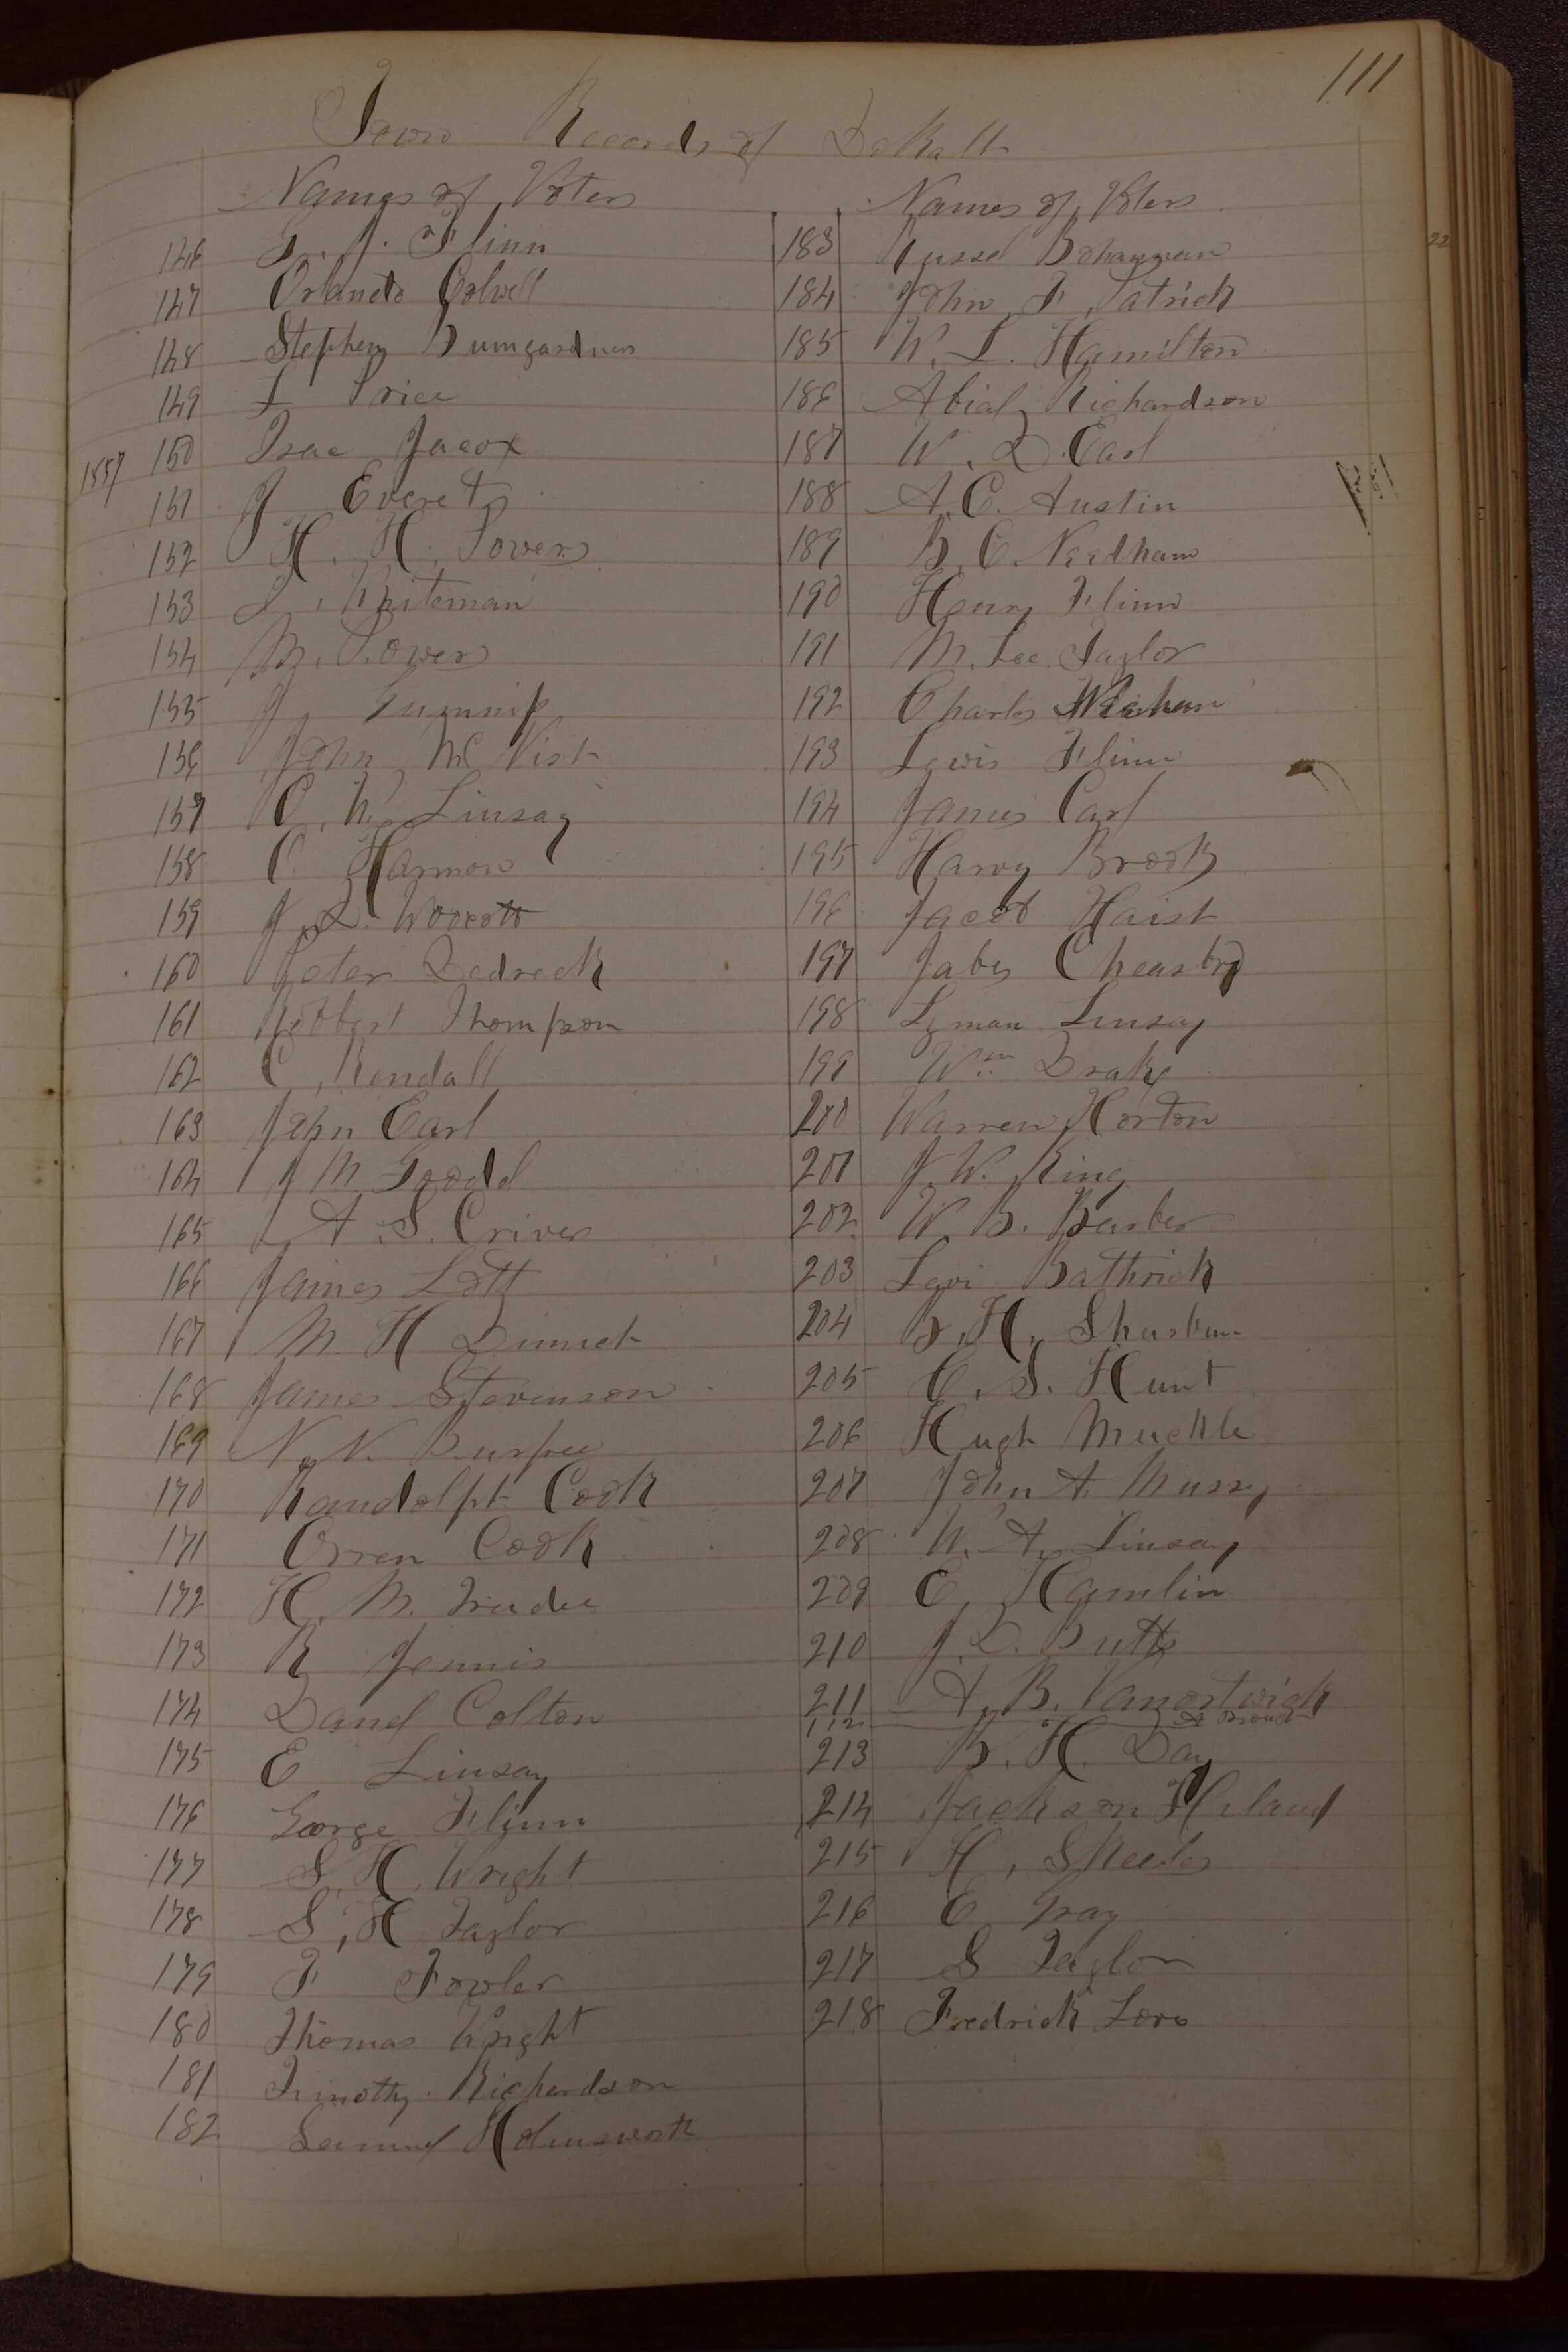 111
Town Records of DeKalb
Names of Voters
146 G. J. Flinn
147 Orlando Colwell
148 Stephen Bumgardner
149 I Price
1857 150 Isac Jacox
151 J Everets
152 H. H. Powers
153 Whiteman
154 M. Powers
155 J Gumnip
156 John Mc Nish
157 C. W. Linsay
158 C. Harmon
159 J. L. Woocott
160 Peter Dedrick
161 Robbert Thompson
162 C. Kendall
163 John Earl
164 J M Goodd
165 A. S. Criver
166 James Lott
167 M. H Dimick
168 James Stevenson
169 N. N. Burpee
170 Randolph Cook
171 Orren Cook
172 H. M. Trudee
173 R Jennis
174 Danel Colton
175 E Linsay
176 George Flinn
177 S. H. Wright
178 S. H Taylor
179 F Fowler
180 Thomas Wright
181 Timothy Richardson
182 Samuel Holmsworth
Names of Voters
183 Russel Bohannan
184 John F Patrick
185 W. L. Hamilton
186 Abial Richardson
187 W. D. Earl
188 A. C. Austin
189 B. C. Needham
190 Henry Flinn
191 M. Lee Taylor
192 Charles
193 Lewis Flinn
194 James Carl
195 Harvy Brooks
196 Jacob Haist
197 Jabes
198 Lyman Linsay
199 Wm Drake
200 Warren Horton
201 J. W. King
202 W. B. Barber
203 Levi Bathrick
204 B. H. Shurburn
205 C. S. Hunt
206 Hugh Muckle
207 John A. Mussy
208 W. A. Linsay
209 E Hamlin
210 J. D. Butts
211 A. B. Vanortwick
112
213 B. H. Day
214 Jackson Hiland
215 H. Skeels
216 E Gray
217 S Taylor
218 Fredrick Love